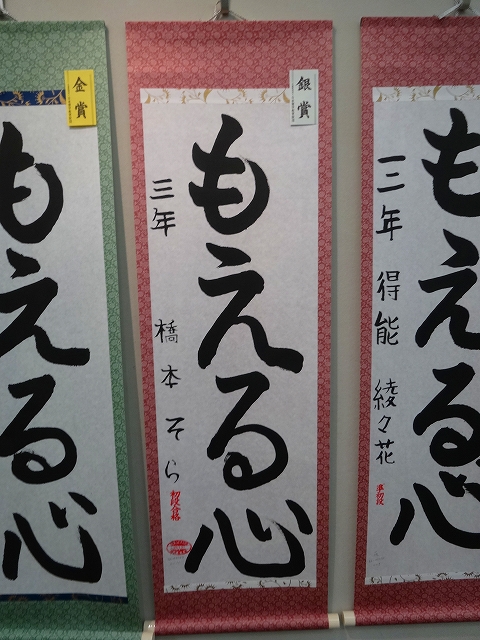 金賞
もえる心
銀賞
もえる心
三年 橋本そら
初段合格
もえる心
三年 得能綾々花
準初段